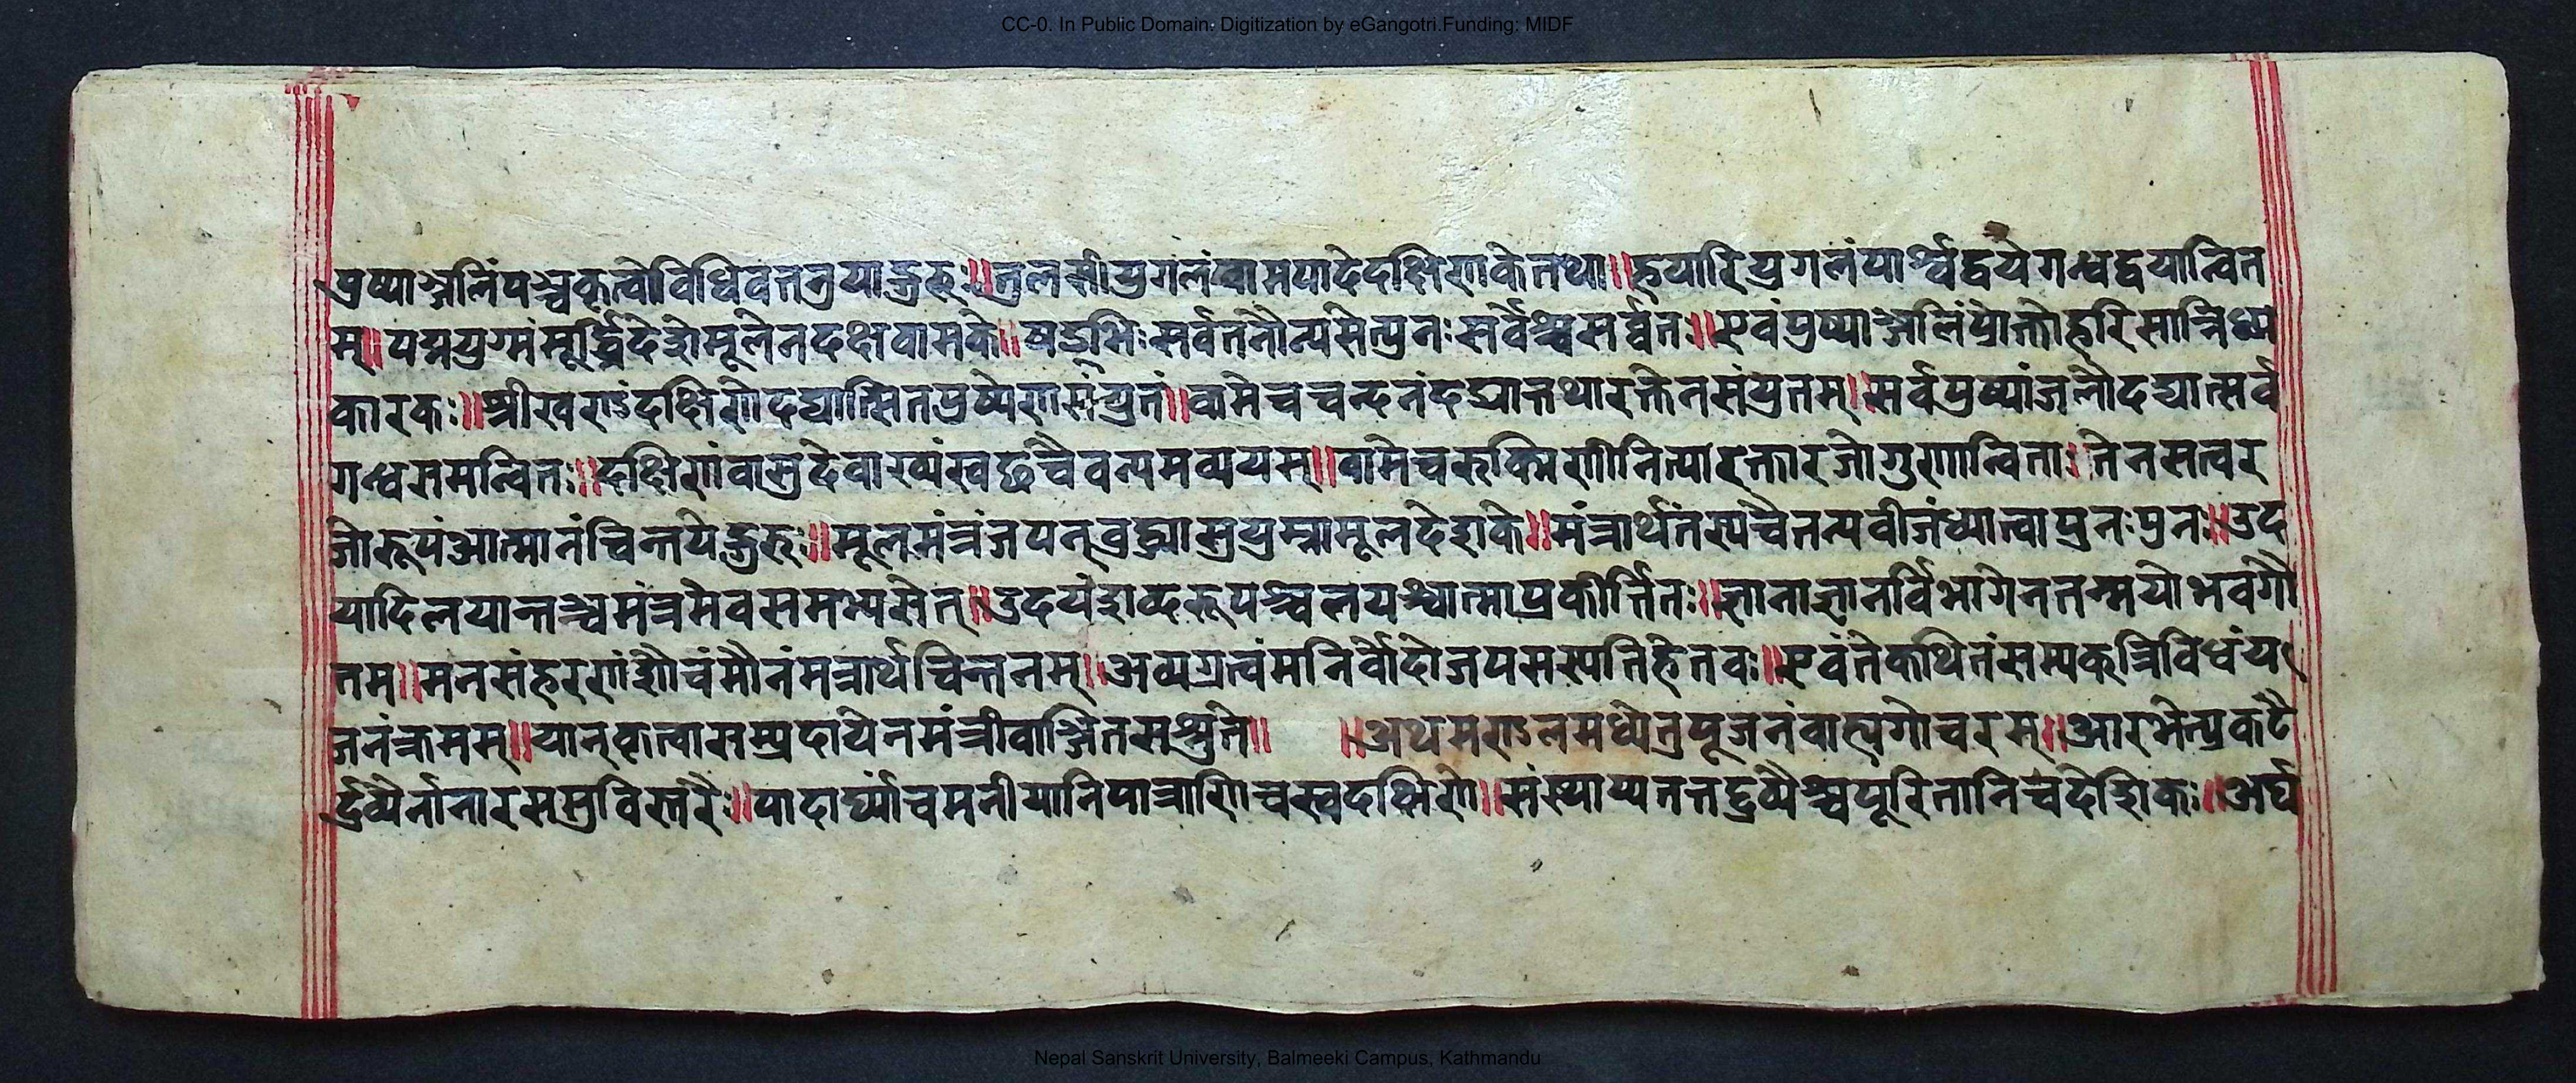 CC-0. In Public Domain. Digitization by eGangotri.Funding: MIDF
पुष्पाञ्जलिंपञ्चकृत्वोविधिवतनुयाद्गुरुः॥तुलसीयुगलंवामपादेदक्षिणकेतथा॥हयारियुगलंपार्श्वद्वयेगन्धद्वयान्वित
म्॥पद्मयुग्मंमूर्द्ध्निदेशेमूलेनदक्षवामके॥षड्भिःसर्वतनौन्यसेत्पुनःसर्वैश्चसर्व्वतः॥एवंपुष्पाञ्जलिंप्रोक्तोहरिसान्निध्य
कारकः॥श्रीखण्डंदक्षिणेदद्यात्सितपुष्पेणसंयुतं॥वामेचचन्दनंदद्यात्तथारक्तेनसंयुतम्॥सर्वपुष्पांजलौदद्यात्सर्व
गन्धसमन्वितः॥दक्षिणंवासुदेवाख्यंस्वछंचैवन्यमव्ययम्॥वामेचरुक्मिणीनित्यारक्तारजोगुणान्विताः तेनसत्वर
जोरूपंआत्मानंचिन्तयेद्गुरुः॥मूलमंत्रंजपन्वुद्ध्यासुषुम्नामूलदेशके॥मंत्रार्थंतस्यचैतन्यवीजंध्यात्वापुनःपुनः॥उद
यादिलयान्तञ्चमंत्रमेवसमभ्यसेत्॥उदयंशब्दरूपञ्चलयश्चात्माप्रकीर्त्तितः॥ज्ञानाज्ञानर्विभागेनतन्मयोभवगौ
तम्॥मनसंहरणंशौचंमौनंमन्त्रार्थचिन्तनम्॥अव्यग्रत्वंमनिर्वेदोजपसस्पतिहेतवः॥एवंतेकथितंसम्यक्त्रिविधंय
जनंक्रमम्॥यान्कृत्वासम्प्रदायेनमंत्रीवाञ्छितमश्नुते॥ ॥अथमण्डलमध्येतुपूजनंवाह्यगोचरम्॥आरभेत्प्रकटै
र्द्रव्यैर्नानारससुविस्तरैः॥पादार्घ्याचमनीयानिपात्राणिचस्वदक्षिणे॥संस्थाप्यतत्तद्रव्यैश्चपूरितानिचदेशिकः॥अर्घ
Nepal Sanskrit University, Balmeeki Campus, Kathmandu